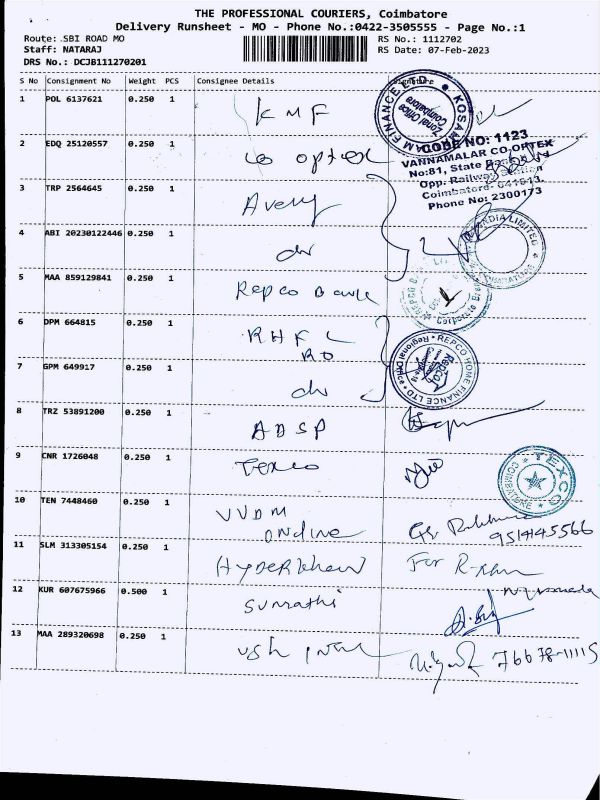 THE PROFESSIONAL COURIERS, Coimbatore
Delivery Runsheet - MO - Phone No.:0422-3505555 - Page No.:1
Route: SBI ROAD MO
RS No.: 1112702
Staff: NATARAJ
RS Date: 07-Feb-2023
DRS No.: DCJB111270201
S No Consignment No Weight PCS Consignee Details Signature
1 POL 6137621 0.250 1 KMF
KOSAMATTAM FINANCE LTD
Zonal Office
Coimbatore
2 EDQ 25120557 0.250 1 co optex
CODE NO: 1123
VANNAMALAR CO-OPTEX
No:81, State Bank
Opp. Railway Station
Coimbatore- 641018.
Phone No: 2300173
3 TRP 2564645 0.250 1 Avery
4 ABI 20230122446 0.250 1 do
LIMITED
COIMBATORE
5 MAA 859129841 0.250 1 Repco Bank
REPCO
Corporate
6 DPM 664815 0.250 1 RHFL
RO
REPCO HOME FINANCE LTD
7 GPM 649917 0.250 1 do
8 TRZ 53891200 0.250 1 ABSP
9 CNR 1726048 0.250 1 Texco
TEXCO
COIMBATORE
10 TEN 7448460 0.250 1 VVDM
online
9514145566
11 SLM 313305154 0.250 1 For R-ram
12 KUR 607675966 0.500 1 Sumathi
13 MAA 289320698 0.250 1 76678-11115